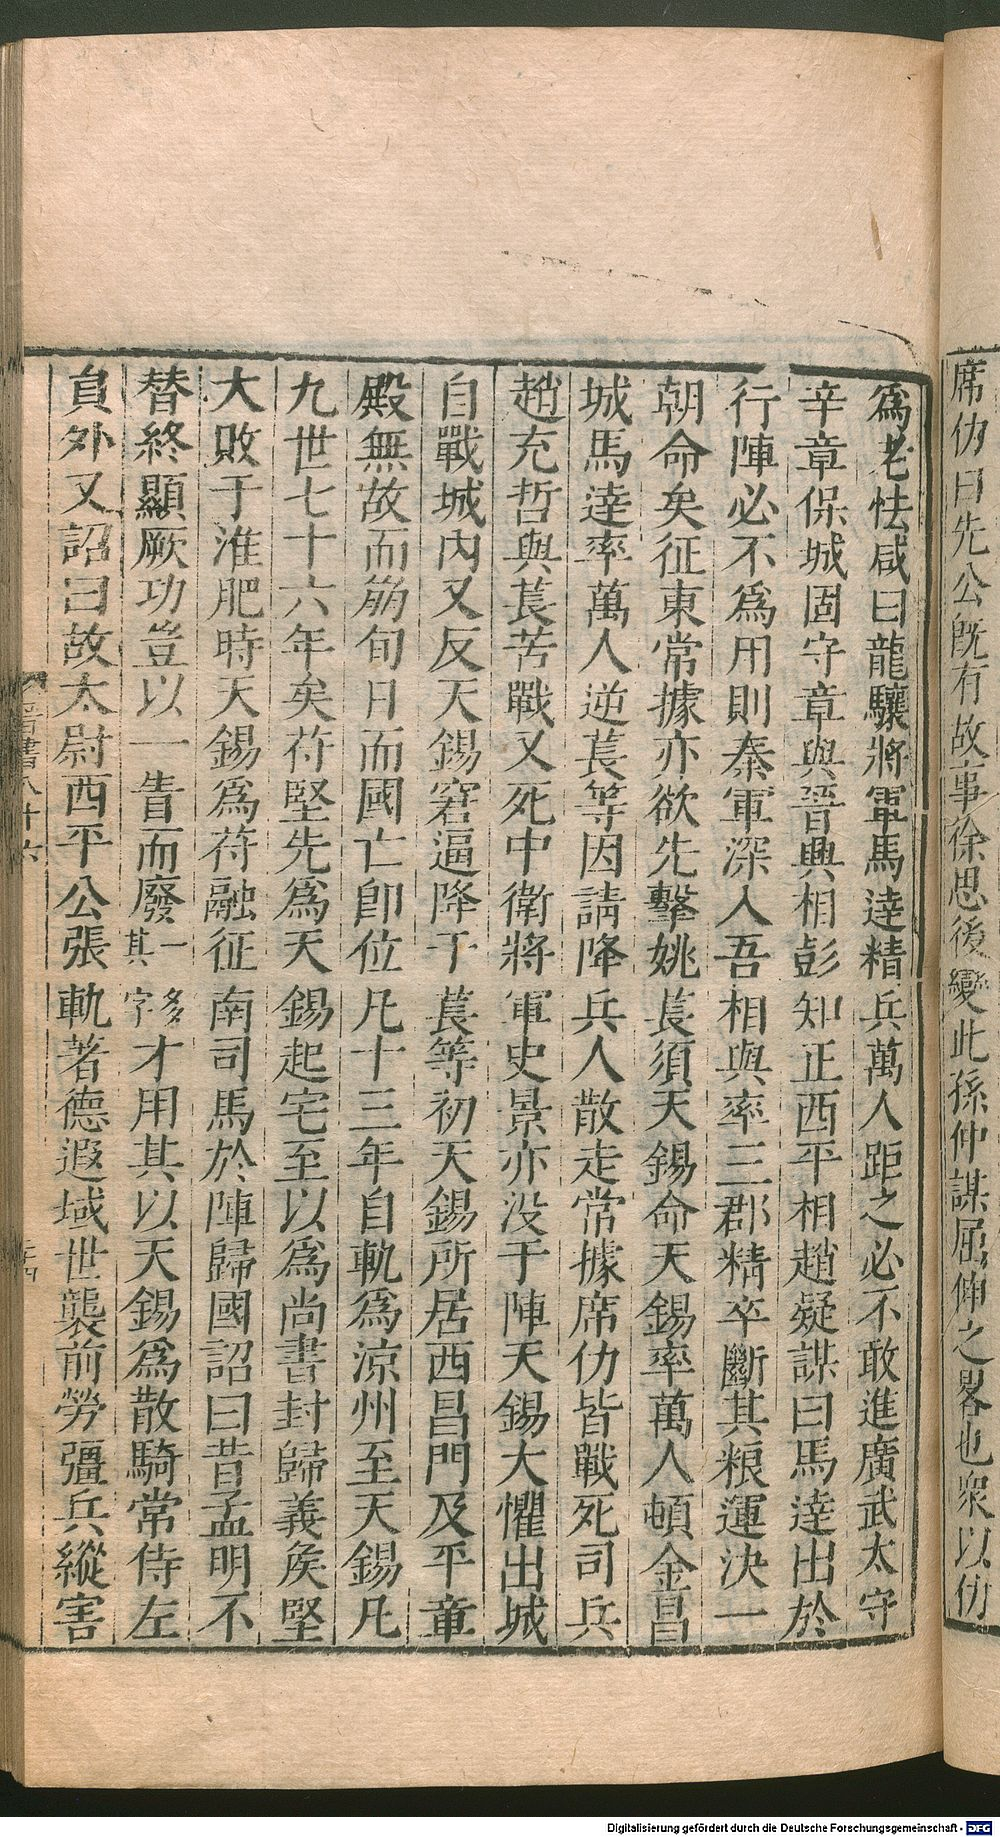 席仂曰先公旣有故事徐思後變此孫仲謀屈伸之畧也衆以仂
爲老怯咸曰龍驤將軍馬達精兵萬人距之必不敢進廣武太守
辛章保城固守章與晉興相彭知正西平相趙疑謀曰馬達出於
行陣必不爲用則秦軍深入吾相與率三郡精卒斷其粮運決一
朝命矣征東常據亦欲先擊姚萇須天錫命天錫率萬人頓金昌
城馬達率萬人逆萇等因請降兵人散走常據席仂皆戰死司兵
趙充哲與萇苦戰又死中衛將軍史景亦没于陣天錫大懼出城
自戰城內又反天錫窘逼降于萇等初天錫所居西昌門及平章
殿無故而崩旬日而國亡卽位凡十三年自軌爲凉州至天錫凡
九世七十六年矣苻堅先爲天錫起宅至以爲尚書封歸義矦堅
大敗于淮肥時天錫爲苻融征南司馬於陣歸國詔曰昔孟明不
替終顯厥功豈以一眚而廢其一多字才用其以天錫爲散騎常侍左
貟外又詔曰故太尉西平公張軌著德遐域世襲前勞彊兵縱害
晋書八十六
Digitalisierung gefördert durch die Deutsche Forschungsgemeinschaft - DFG